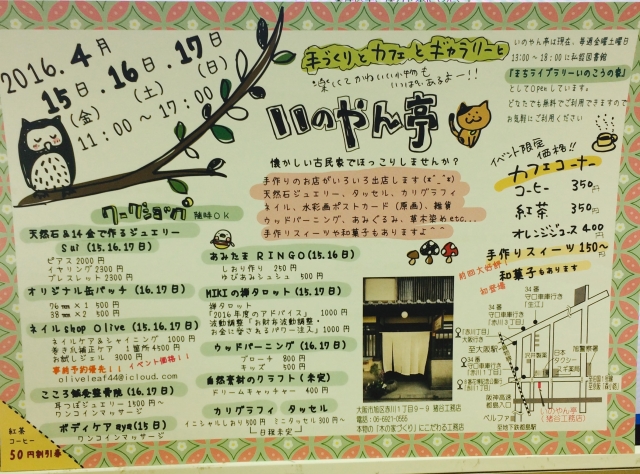 2016.4月
15日.16日.17日
(金) (土) (日)
11:00～17:00
手づくりとカフェとギャラリーと
楽しくてかわいい小物も
いっぱいあるよー!!
いのやん亭
懐かしい古民家でほっこりしませんか?
いのやん亭は現在、毎週金曜土曜日
13:00～18:00に私設図書館
「まちライブラリーいのこうの家」
としてOpenしています。
どなたでも無料でご利用できますので
お気軽にご利用ください
手作りのお店がいろいろ出店します(x^_^x)
天然石ジュエリー、タッセル、カリグラフィ
ネイル、水彩画ポストカード(原画)、雑貨
ウッドバーニング、あみぐるみ、草木染めetc...
手作りスィーツや和菓子もありますよ^^
イベント限定
価格!!
カフェコーナー
コーヒー 350円
紅茶 350円
オレンジジュース 400円
手作りスィーツ 150～円
前回大好評!
初登場
和菓子もあります
ワークショップ 随時OK
天然石&14金で作るジュエリー
Sai (15.16.17日)
ピアス 2000円
イヤリング 2300円
ブレスレット 2300円
オリジナル缶バッチ (16.17日)
76mm×1 500円
38mm×2 500円
ネイルshop Olive (15.16.17日)
ネイルケア&シャイニング 1000円
巻き爪補正ケア 1箇所 4500円
お試しジェル 3000円
事前予約優先!! イベント価格!!
oliveleaf44@icloud.com
こころ鍼灸整骨院 (16.17日)
耳つぼジュエリー 1500円～
ワンコインマッサージ
ボディケアaya (15日)
ワンコインマッサージ
あみたま RINGO (15.16日)
しおり作り 250円
ゆびあみシュシュ 500円
MIKIの禅タロット (15.17日)
禅タロット
「2016年度のアドバイス」 1000円
波動調整「お財布波動調整・
お金に愛されるパワー注入」 1000円
ウッドバーニング (16.17日)
ブローチ 800円
キッズ 500円
自然素材のクラフト (未定)
ドリームキャッチャー 400円
カリグラフィ タッセル
イニシャルしおり 500円 ミニタッセル 300円～
(日程未定)
大阪市旭区赤川1丁目9-9 猪谷工務店
電話:06-6921-0555
本物の「木の家づくり」にこだわる工務店
至大阪駅
いのやん亭
(猪谷工務店)
至地下鉄都島駅
紅茶
コーヒー
50円割引券